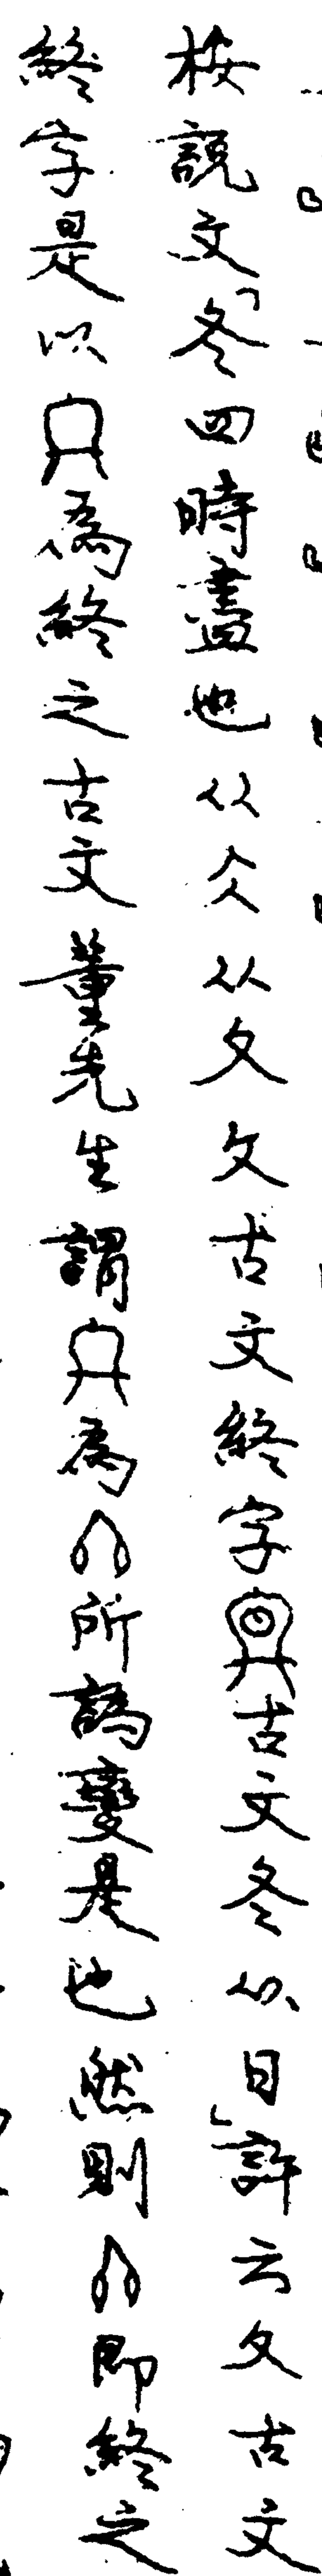 按說文「冬四時盡也从仌从夂夂古文終字古文冬从日」許云夂古文
終字是以為終之古文董先生謂為所譌變是也然則即終之